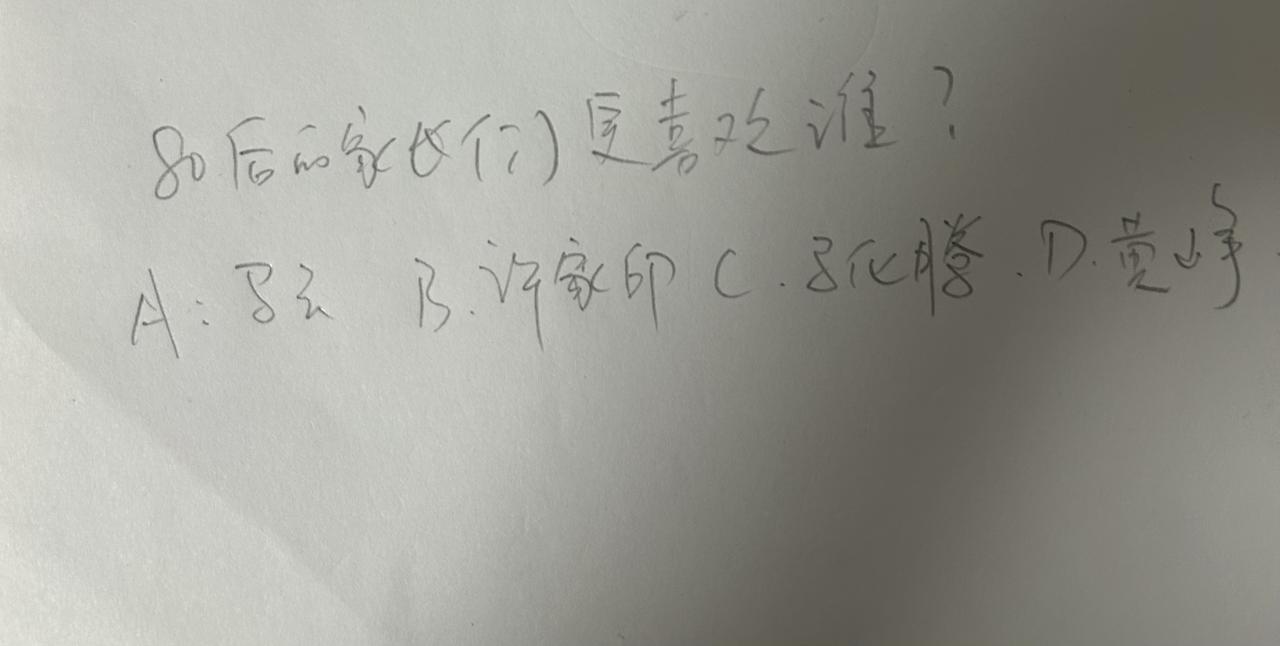 80后的家长们更喜欢谁？
A：马云 B.许家印 C.马化腾.D.黄峥